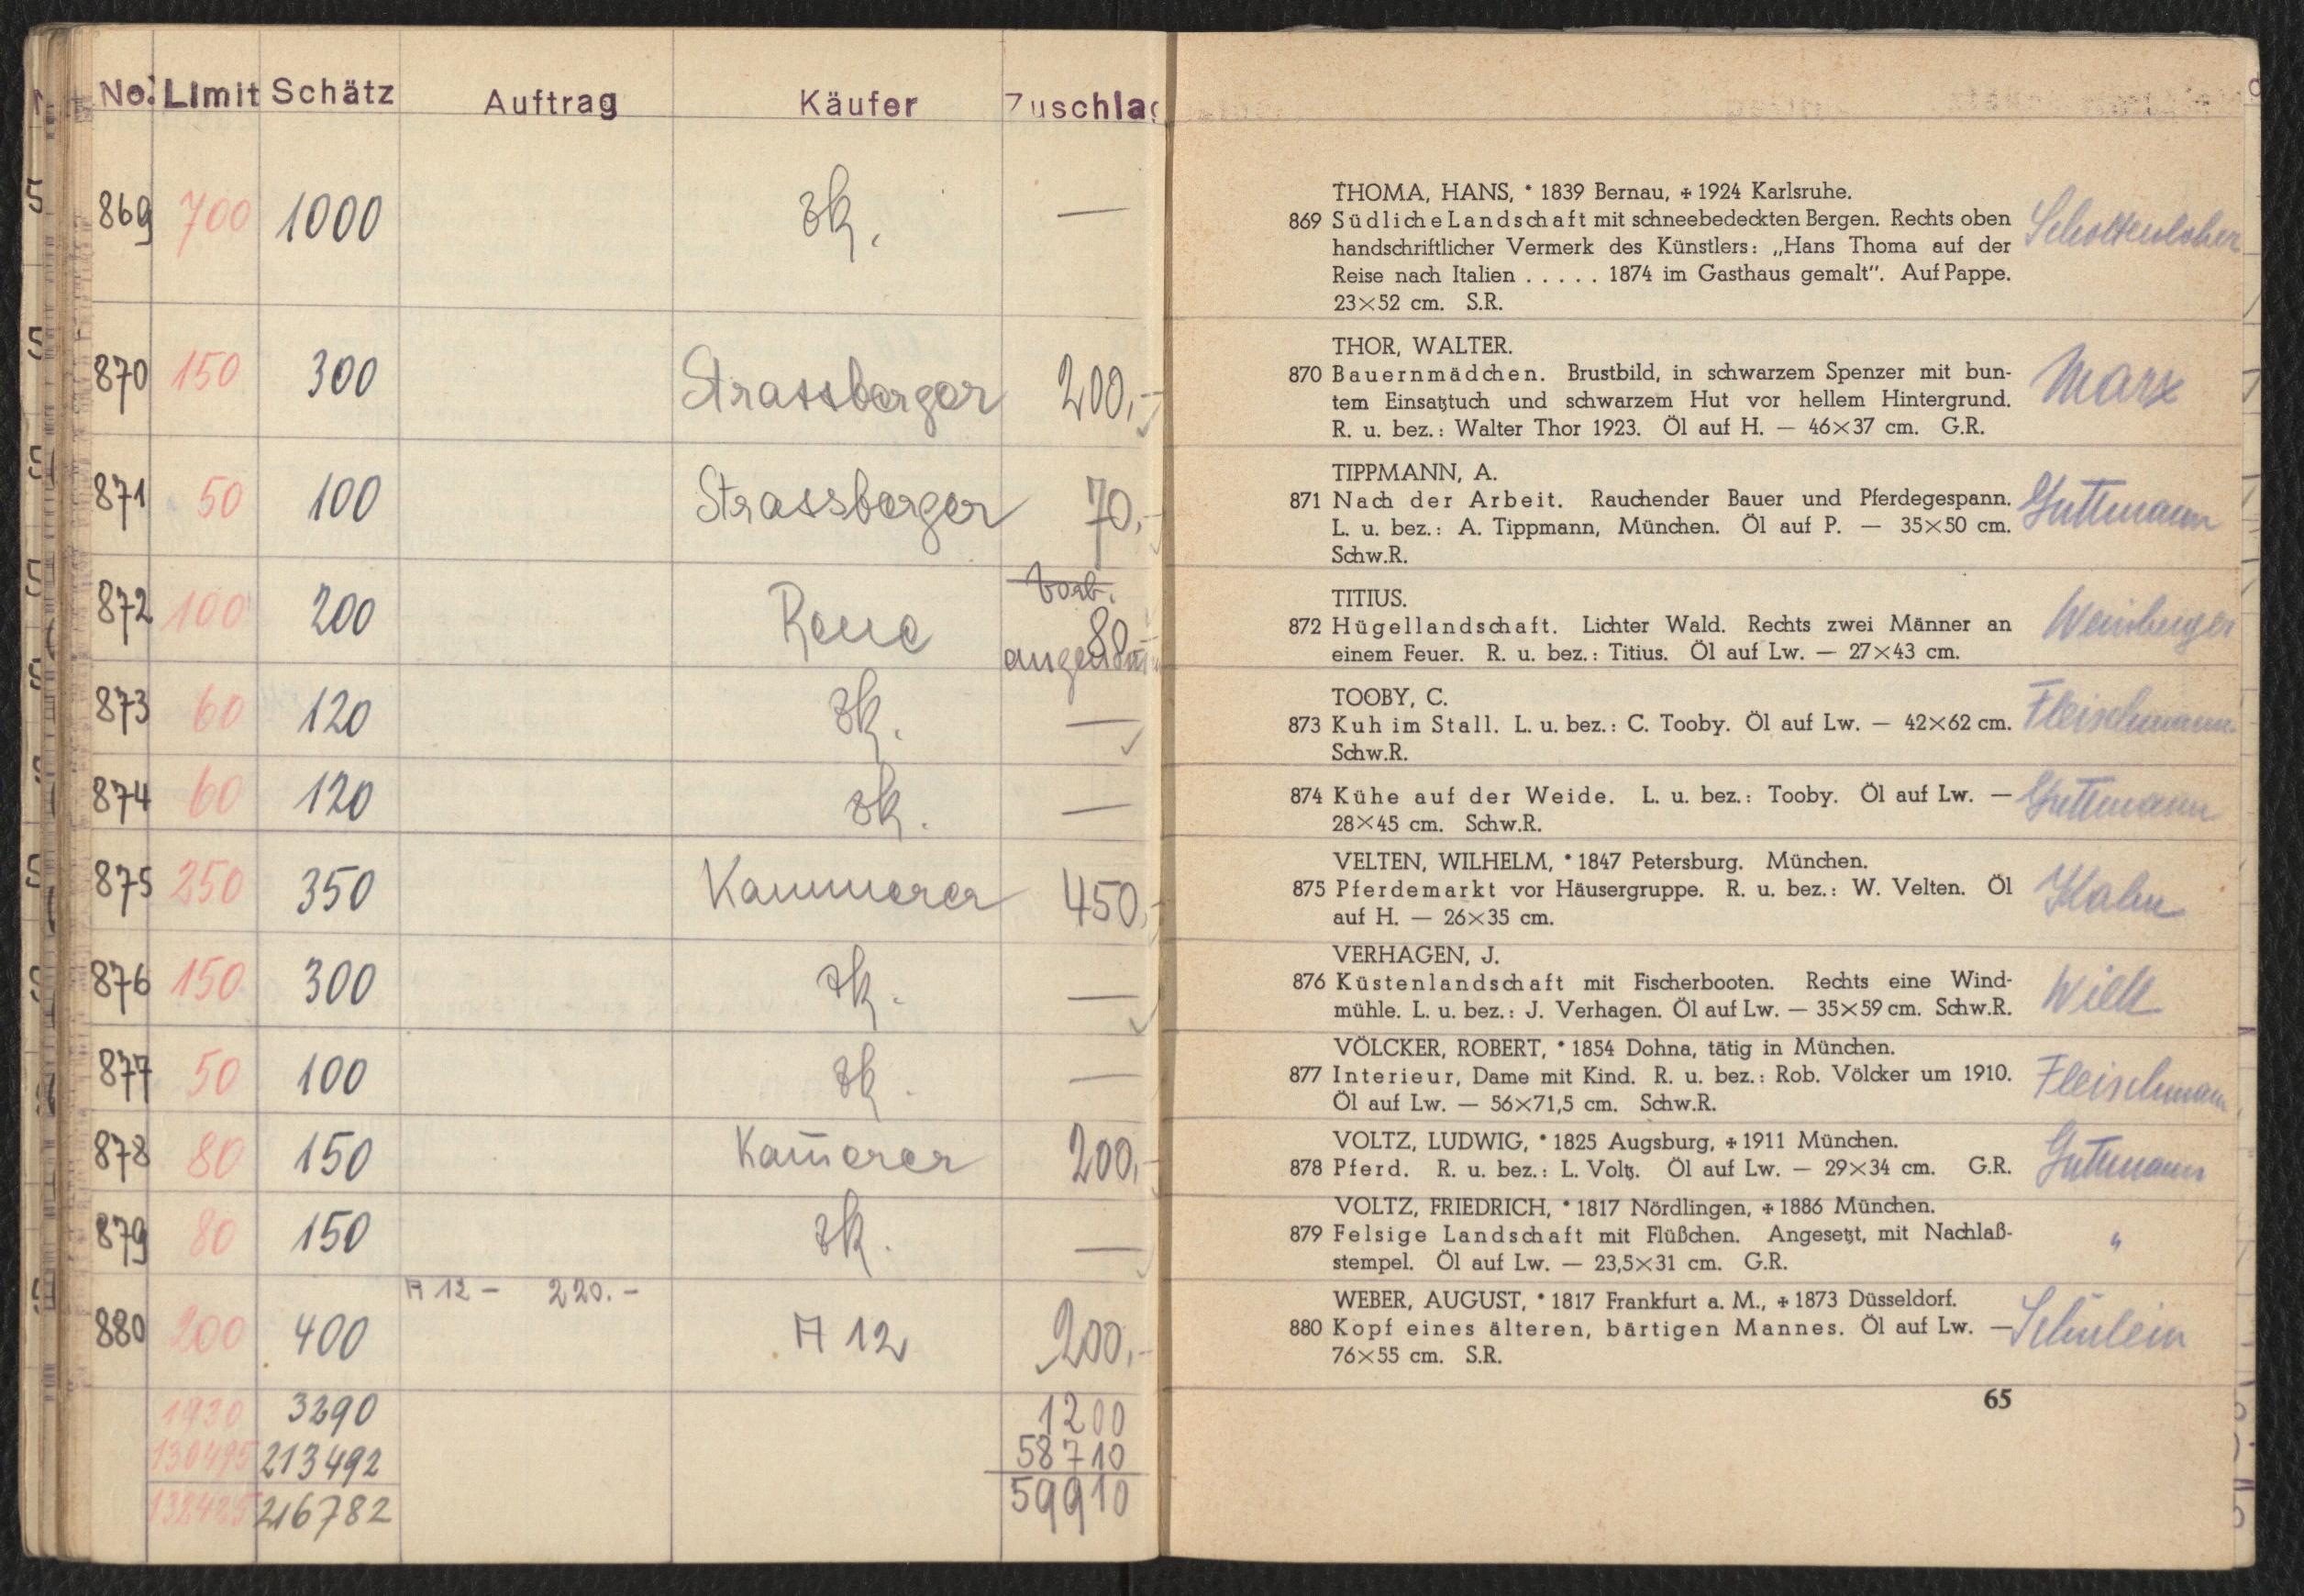 No. Limit Schätz Auftrag Käufer Zuschlag
869 700 1000 zk. —
870 150 300 Strassberger 200,-
871 50 100 Strassberger 70,-
872 100 200 80,-
873 60 120 zk. —
874 60 120 zk. —
875 250 350 Kammerer 450,-
876 150 300 zk. —
877 50 100 zk. —
878 80 150 Kam̄erer 200,-
879 80 150 zk. —
A 12 – 220.–
880 200 400 A 12 200,-
1930 3290 1200
130495 213492 58710
132425 216782 59910
THOMA, HANS, * 1839 Bernau, ✢ 1924 Karlsruhe.
869 Südliche Landschaft mit schneebedeckten Bergen. Rechts oben
handschriftlicher Vermerk des Künstlers: „Hans Thoma auf der
Reise nach Italien . . . . . 1874 im Gasthaus gemalt“. Auf Pappe.
23×52 cm. S.R.
Schottenloher
THOR, WALTER.
870 Bauernmädchen. Brustbild, in schwarzem Spenzer mit bun-
tem Einsatztuch und schwarzem Hut vor hellem Hintergrund.
R. u. bez.: Walter Thor 1923. Öl auf H. — 46×37 cm. G.R.
Marx
TIPPMANN, A.
871 Nach der Arbeit. Rauchender Bauer und Pferdegespann.
L. u. bez.: A. Tippmann, München. Öl auf P. — 35×50 cm.
Schw.R.
Guttmann
TITIUS.
872 Hügellandschaft. Lichter Wald. Rechts zwei Männer an
einem Feuer. R. u. bez.: Titius. Öl auf Lw. — 27×43 cm.
Weinberger
TOOBY, C.
873 Kuh im Stall. L. u. bez.: C. Tooby. Öl auf Lw. — 42×62 cm.
Schw.R.
Fleischmann
874 Kühe auf der Weide. L. u. bez.: Tooby. Öl auf Lw. —
28×45 cm. Schw.R.
Guttmann
VELTEN, WILHELM, * 1847 Petersburg. München.
875 Pferdemarkt vor Häusergruppe. R. u. bez.: W. Velten. Öl
auf H. — 26×35 cm.
Kahn
VERHAGEN, J.
876 Küstenlandschaft mit Fischerbooten. Rechts eine Wind-
mühle. L. u. bez.: J. Verhagen. Öl auf Lw. — 35×59 cm. Schw.R.
VÖLCKER, ROBERT, * 1854 Dohna, tätig in München.
877 Interieur, Dame mit Kind. R. u. bez.: Rob. Völcker um 1910.
Öl auf Lw. — 56×71,5 cm. Schw.R.
Fleischmann
VOLTZ, LUDWIG, * 1825 Augsburg, ✢ 1911 München.
878 Pferd. R. u. bez.: L. Voltz. Öl auf Lw. — 29×34 cm. G.R.
Guttmann
VOLTZ, FRIEDRICH, * 1817 Nördlingen, ✢ 1886 München.
879 Felsige Landschaft mit Flüßchen. Angesetzt, mit Nachlaß-
stempel. Öl auf Lw. — 23,5×31 cm. G.R.
"
WEBER, AUGUST, * 1817 Frankfurt a. M., ✢ 1873 Düsseldorf.
880 Kopf eines älteren, bärtigen Mannes. Öl auf Lw. —
76×55 cm. S.R.
Schülein
65